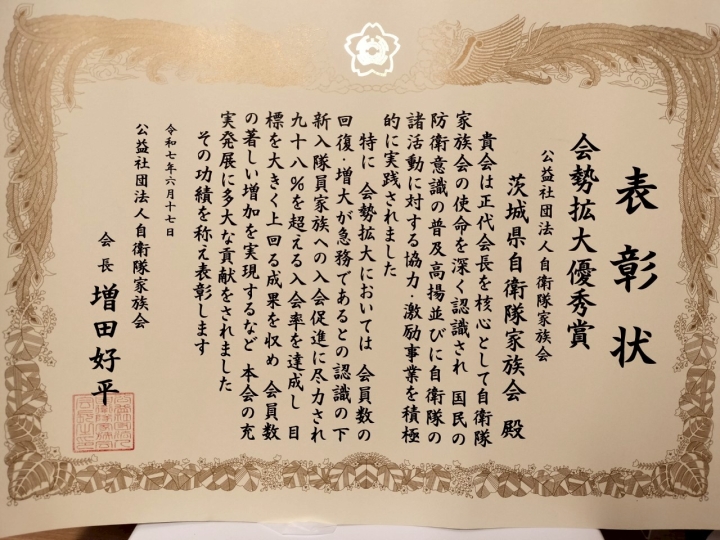 表彰状
会勢拡大優秀賞
公益社団法人自衛隊家族会
茨城県自衛隊家族会 殿
貴会は正代会長を核心として自衛隊
家族会の使命を深く認識され 国民の
防衛意識の普及高揚並びに自衛隊の
諸活動に対する協力・激励事業を積極
的に実践されました
特に 会勢拡大においては 会員数の
回復・増大が急務であるとの認識の下
新入隊員家族への入会促進に尽力され
九十八%を超える入会率を達成し 目
標を大きく上回る成果を収め 会員数
の著しい増加を実現するなど 本会の充
実発展に多大な貢献をされました
その功績を称え表彰します
令和七年六月十七日
公益社団法人自衛隊家族会
会長 増田好平